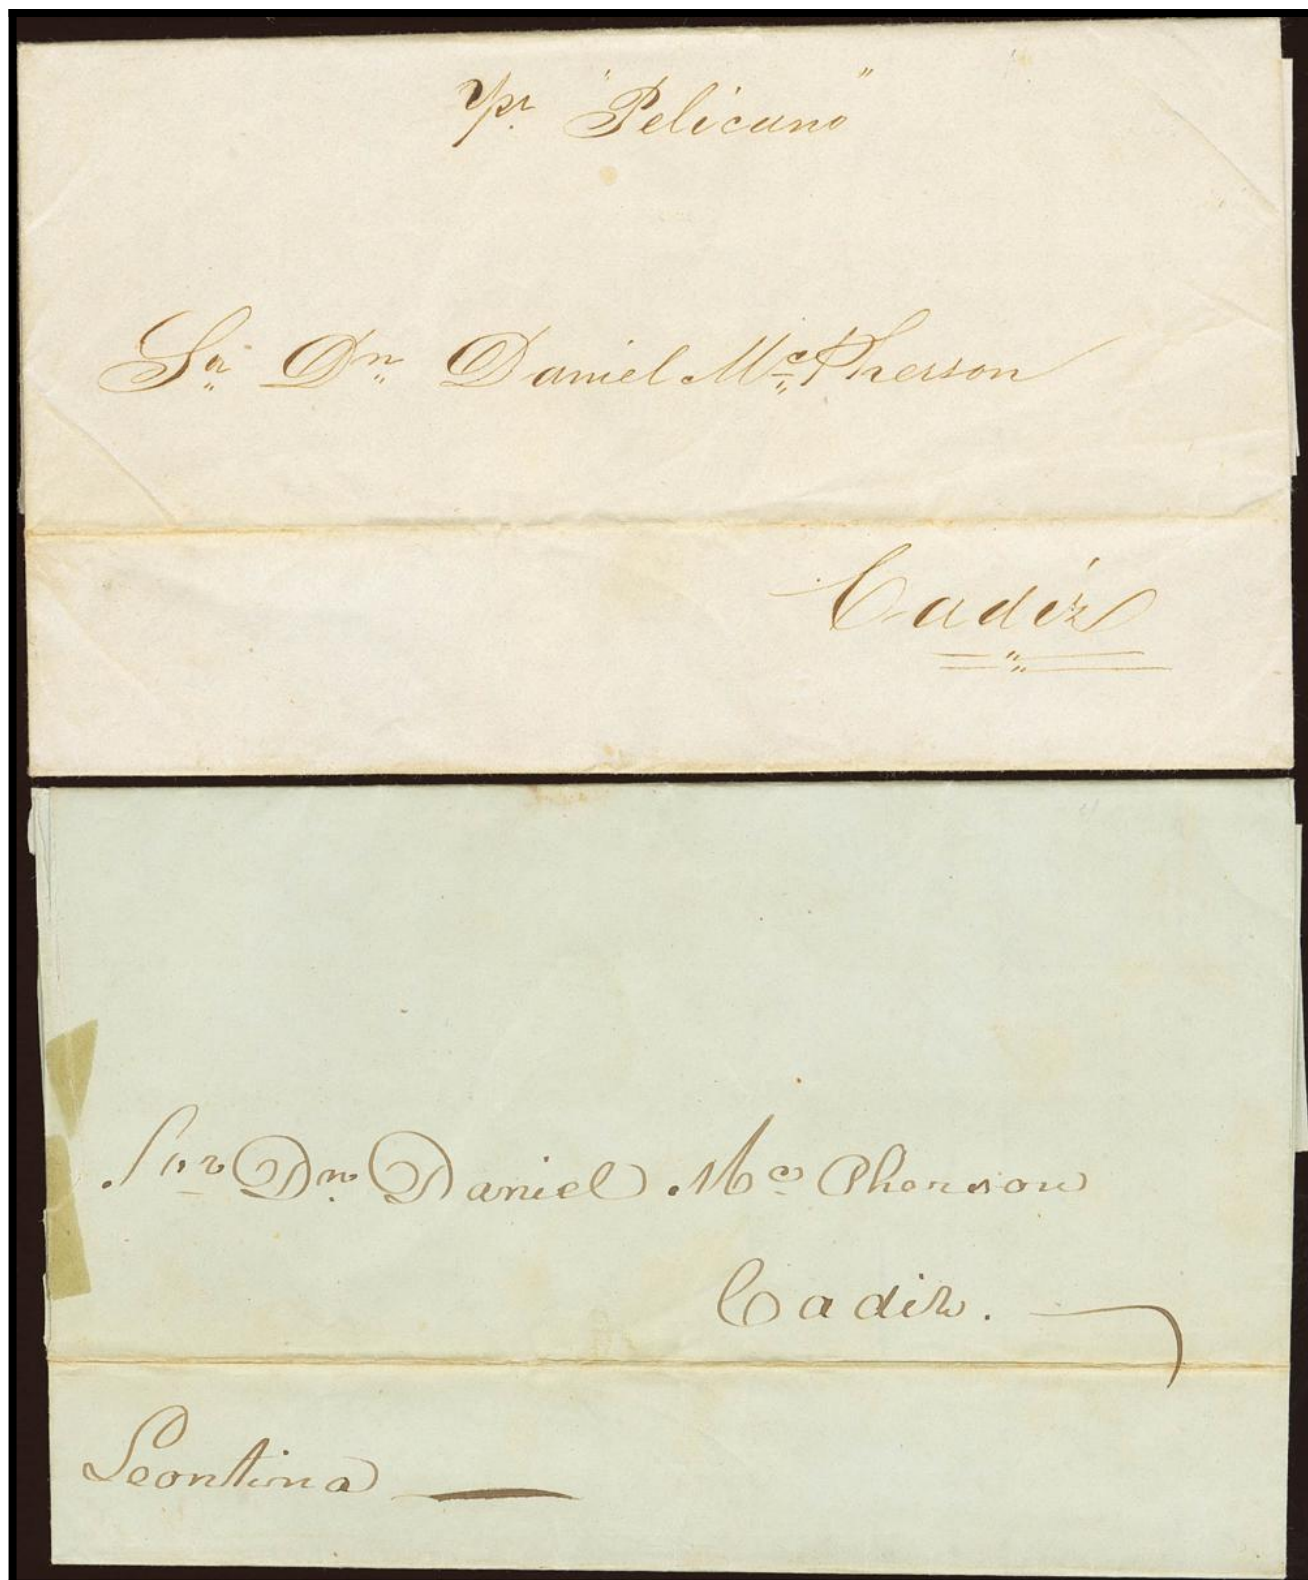 pr. "Pelicano"
Sr Dn Daniel Mc Pherson
Cadiz
Snr Dn Daniel Mc Pherson
Cadiz.
Leontina